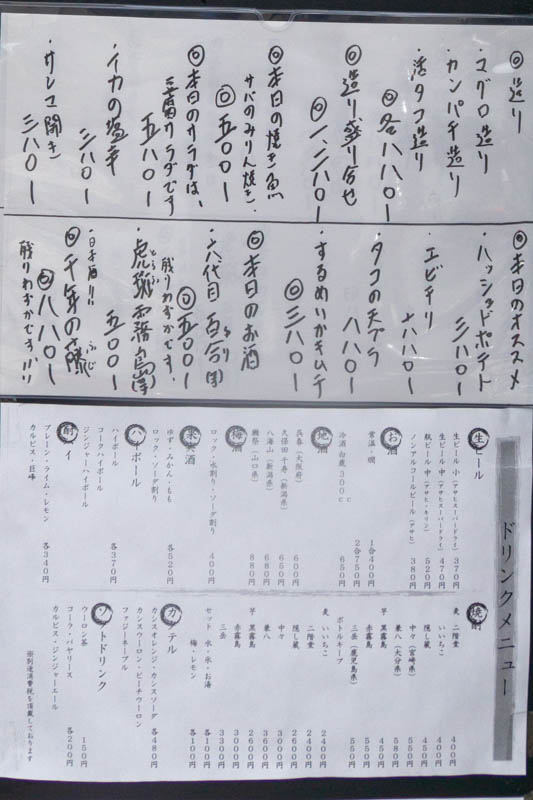 ◎造り
・マグロ造り
・カンパチ造り
・活タコ造り
◎各八八〇ー
◎造り盛り合せ
◎一、二八〇ー
◎本日の焼き魚
サバのみりん焼き。
◎五〇〇ー
◎本日のサラダは、
豆腐サラダです
五八〇ー
・イカの塩辛
三八〇ー
・サレコ開き
三八〇ー
◎本日のオススメ
・ハッシュドポテト
三八〇ー
・エビチリ
・タコの天プラ
八八〇ー
・するめいかキムチ
◎三八〇ー
◎本日のお酒
・六代目 百合(芋)
ゆり
残りわずかです、
◎五〇〇ー
・虎斑霧島(芋)
とらふ
五〇〇ー
・日本酒!!
◎千年の藤
ふじ
◎八八〇ー
残りわずかです!!!
ドリンクメニュー
生ビール
生ビール 小(アサヒスーパードライ) 370円
生ビール 中(アサヒスーパードライ) 470円
瓶ビール 中(アサヒ・キリン) 520円
ノンアルコールビール(アサヒ) 380円
お酒
常温・燗 1合400円
2合750円
冷酒 白鹿 300cc 650円
地酒
呉春(大阪府) 600円
久保田 千寿(新潟県) 650円
八海山(新潟県) 680円
獺祭(山口県) 880円
梅酒
ロック・水割り・ソーダ割り 400円
果実酒
ゆず・みかん・もも
ロック・ソーダ割り 各520円
ハイボール
ハイボール
コークハイボール
ジンジャーハイボール 各370円
酎ハイ
プレーン・ライム・レモン
カルピス・巨峰 各340円
焼酎
麦 二階堂 400円
いいちこ 400円
隠し蔵 450円
中々(宮崎県) 550円
兼八(大分県) 580円
芋 黒霧島 450円
赤霧島 550円
三岳(鹿児島県) 550円
ボトルキープ
麦 いいちこ 2400円
二階堂 2400円
隠し蔵 2600円
中々 3000円
兼八 3600円
芋 黒霧島 2600円
赤霧島 3000円
三岳 3300円
セット 水・氷・お湯 各100円
梅・レモン 各100円
カクテル
カシスオレンジ・カシスソーダ
カシスウーロン・ピーチウーロン
ファジーネーブル 各480円
ソフトドリンク
ウーロン茶 150円
コーラ・バヤリース
カルピス・ジンジャーエール 各200円
※別途消費税を頂戴しております